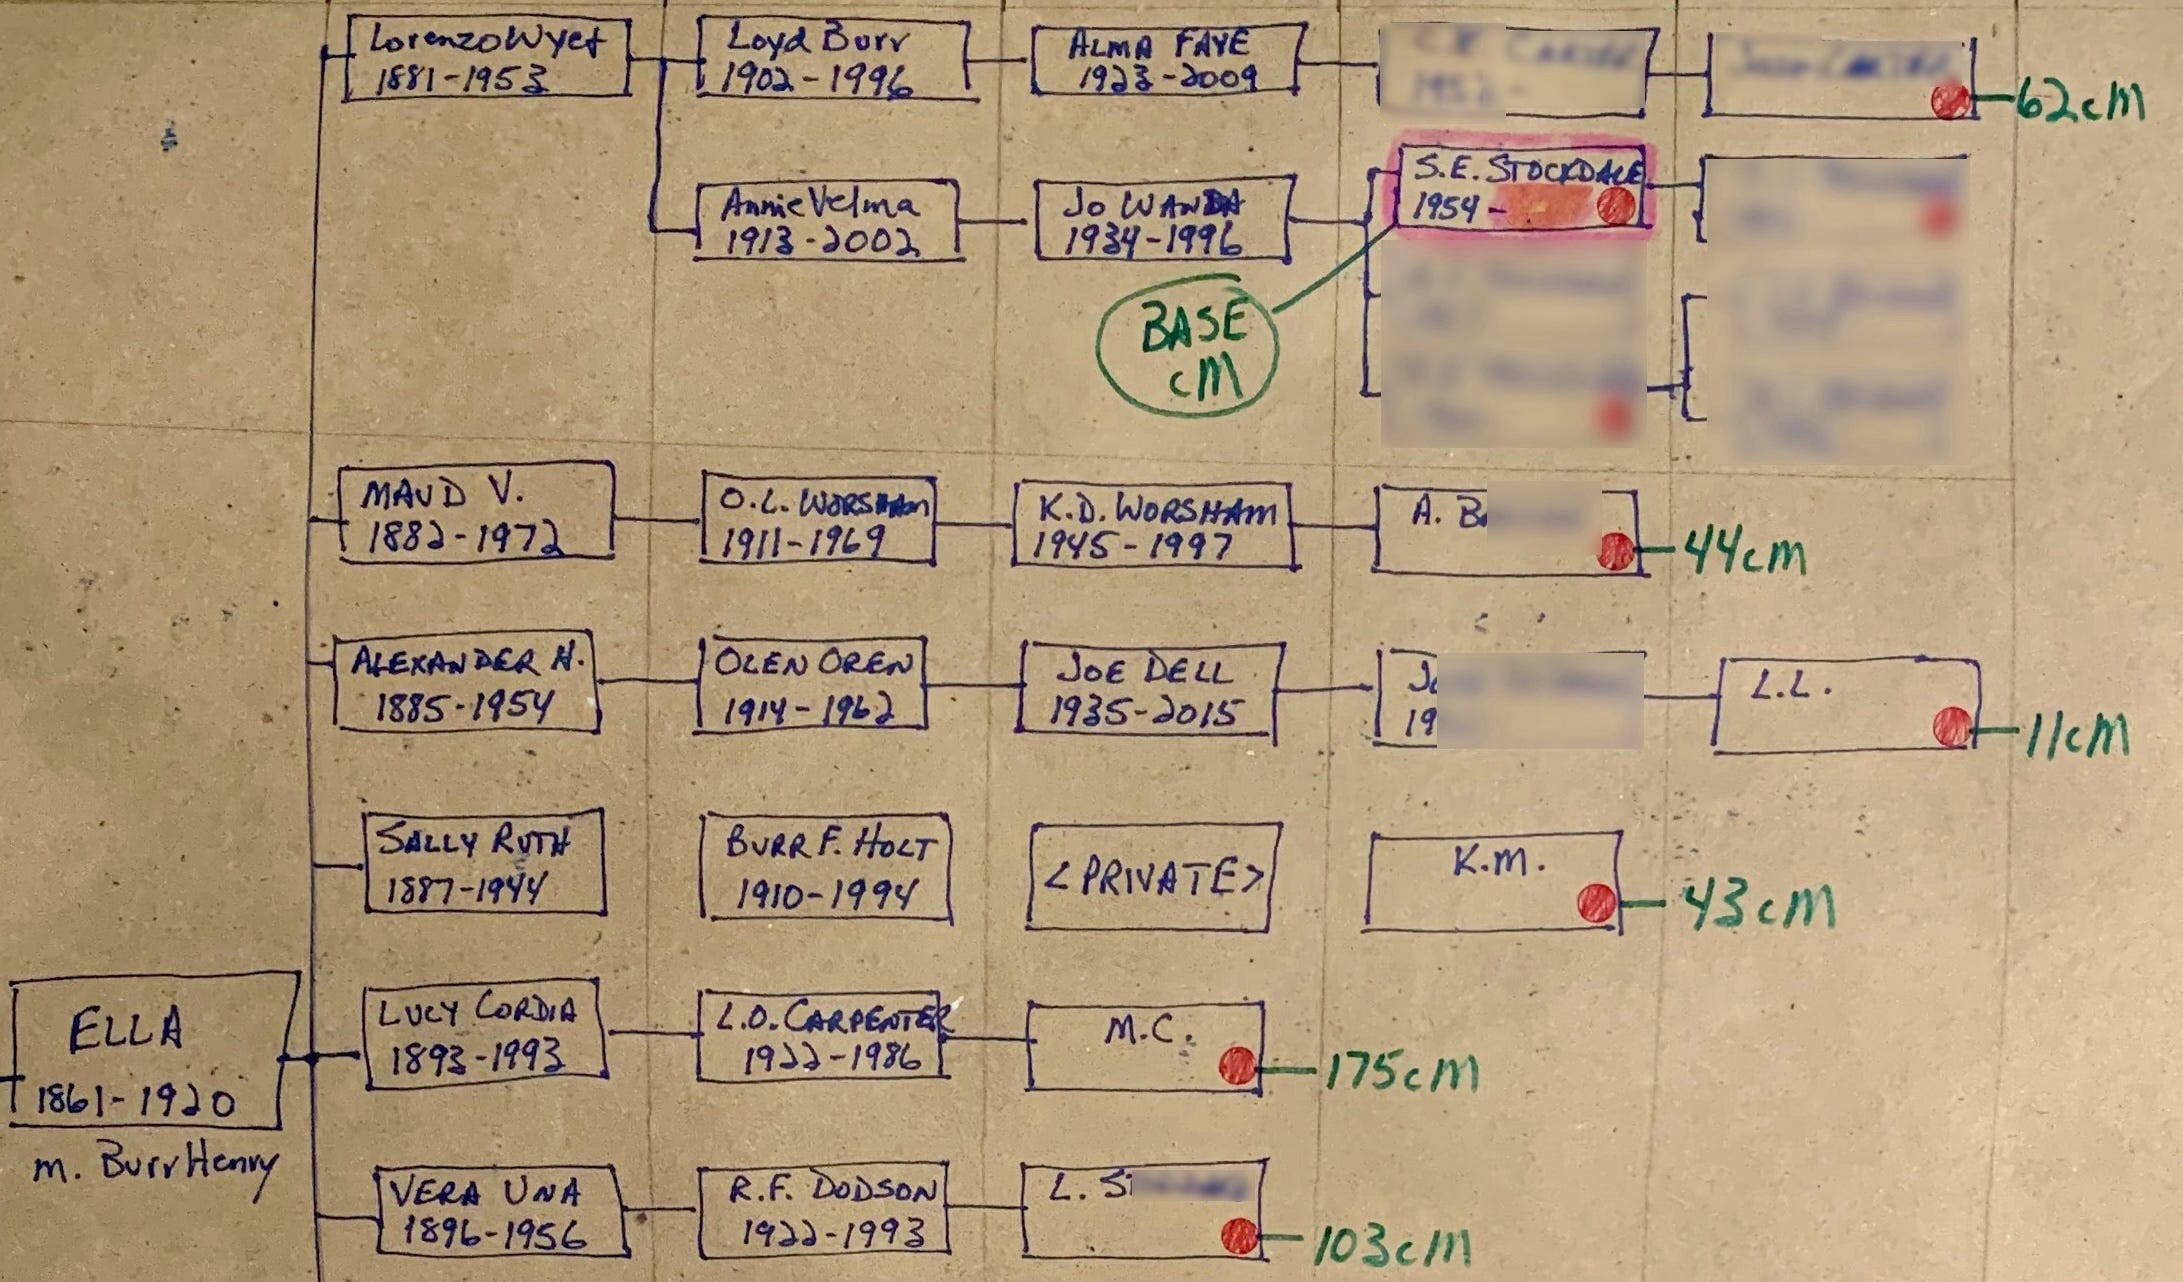 Lorenzo Wyet
1881-1953
Loyd Burr
1902-1996
ALMA FAYE
1923-2009
62cM
Annie Velma
1913-2002
Jo WANDA
1934-1996
S.E. STOCKDALE
1954-
BASE
cM
MAUD V.
1882-1972
O.L. WORSHAM
1911-1969
K.D. WORSHAM
1945-1997
A. B
44cM
ALEXANDER H.
1885-1954
OLEN OREN
1914-1962
JOE DELL
1935-2015
19
L.L.
11cM
SALLY RUTH
1887-1944
BURR F. HOLT
1910-1994
<PRIVATE>
K.M.
43cM
ELLA
1861-1920
m. Burr Henry
LUCY CORDIA
1893-1993
L.O. CARPENTER
1922-1986
M.C.
175cM
VERA UNA
1896-1956
R.F. DODSON
1922-1993
L. S
103cM